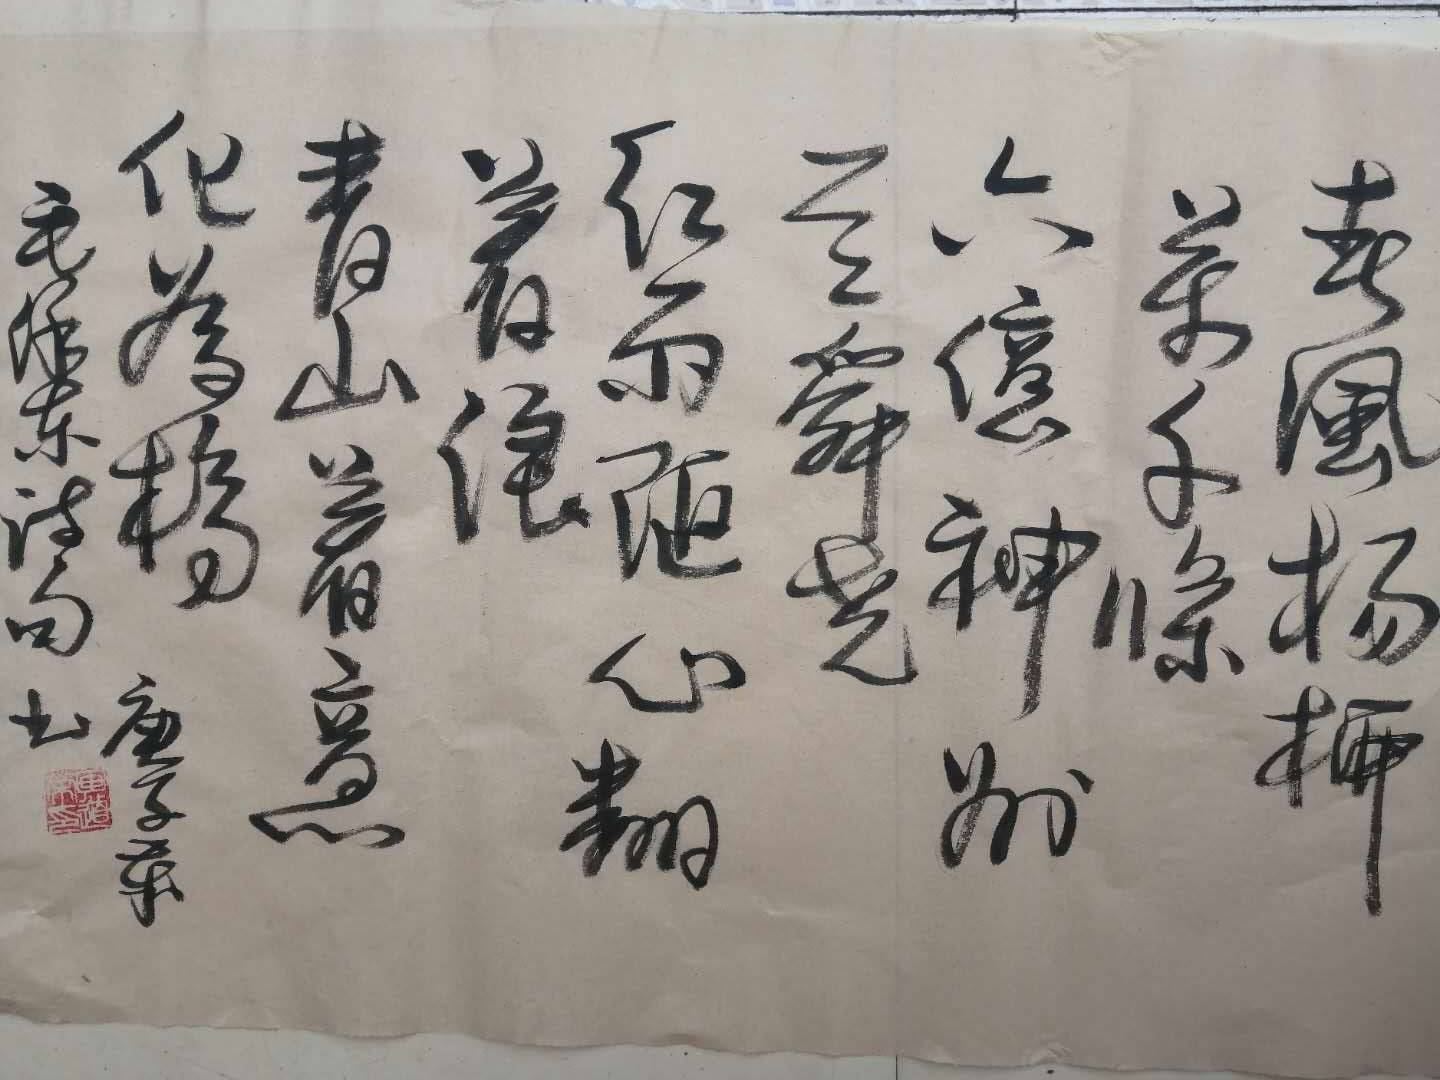 春風楊柳
萬千條
六億神州
盡舜堯
紅雨随心翻
着浪
青山着意
化為橋
庚子葉
毛澤東詩句書